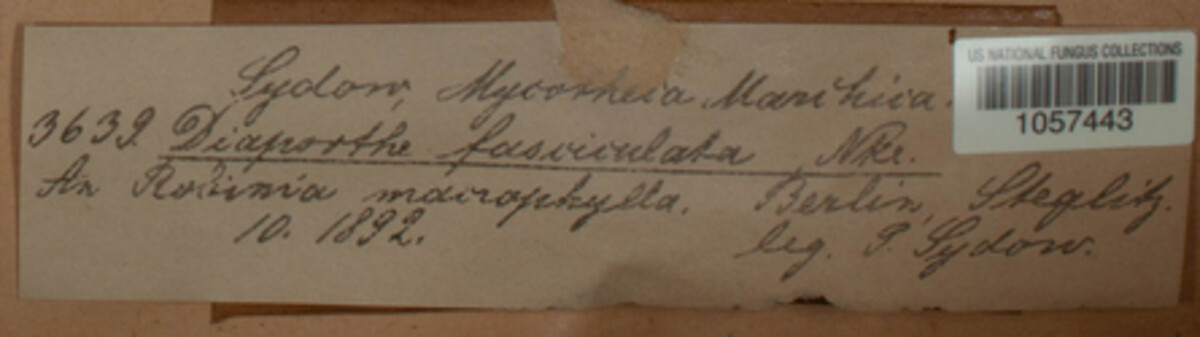 Sydow, Mycotheca Marchica.
US NATIONAL FUNGUS COLLECTIONS
1057443
3639. Diaporthe fasciculata Nke.
An Robinia macrophylla. Berlin, Steglitz.
10. 1892. leg. P. Sydow.